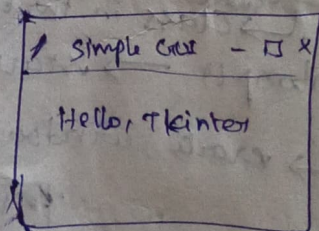 Simple GUI - □ x
Hello, Tkinter